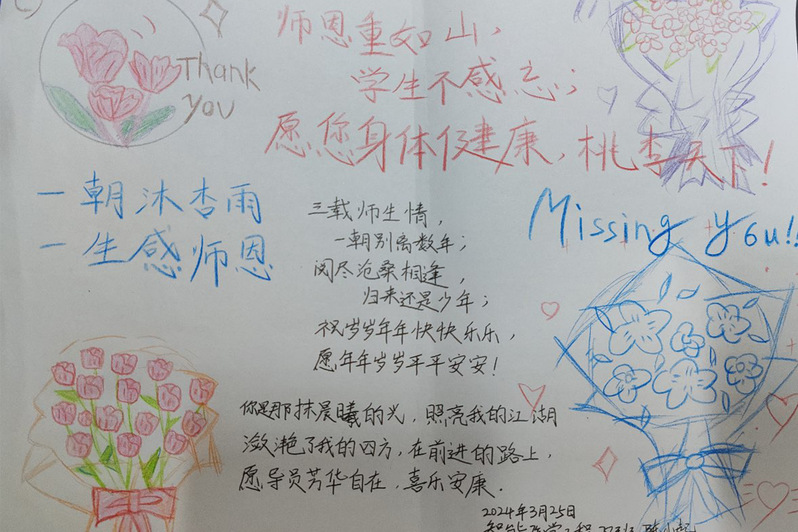 Thank
you
师恩重如山，
学生不感忘；
愿您身体健康，桃李天下！
一朝沐杏雨
一生感师恩
三载师生情，
一朝别离数年；
阅尽沧桑相逢，
归来还是少年；
祝岁岁年年快快乐乐，
愿年年岁岁平平安安！
Missing you!!
你是那抹晨曦的光，照亮我的江湖
潋滟了我的四方，在前进的路上，
愿导员芳华自在，喜乐安康．
2024年3月25日
智能医学工程